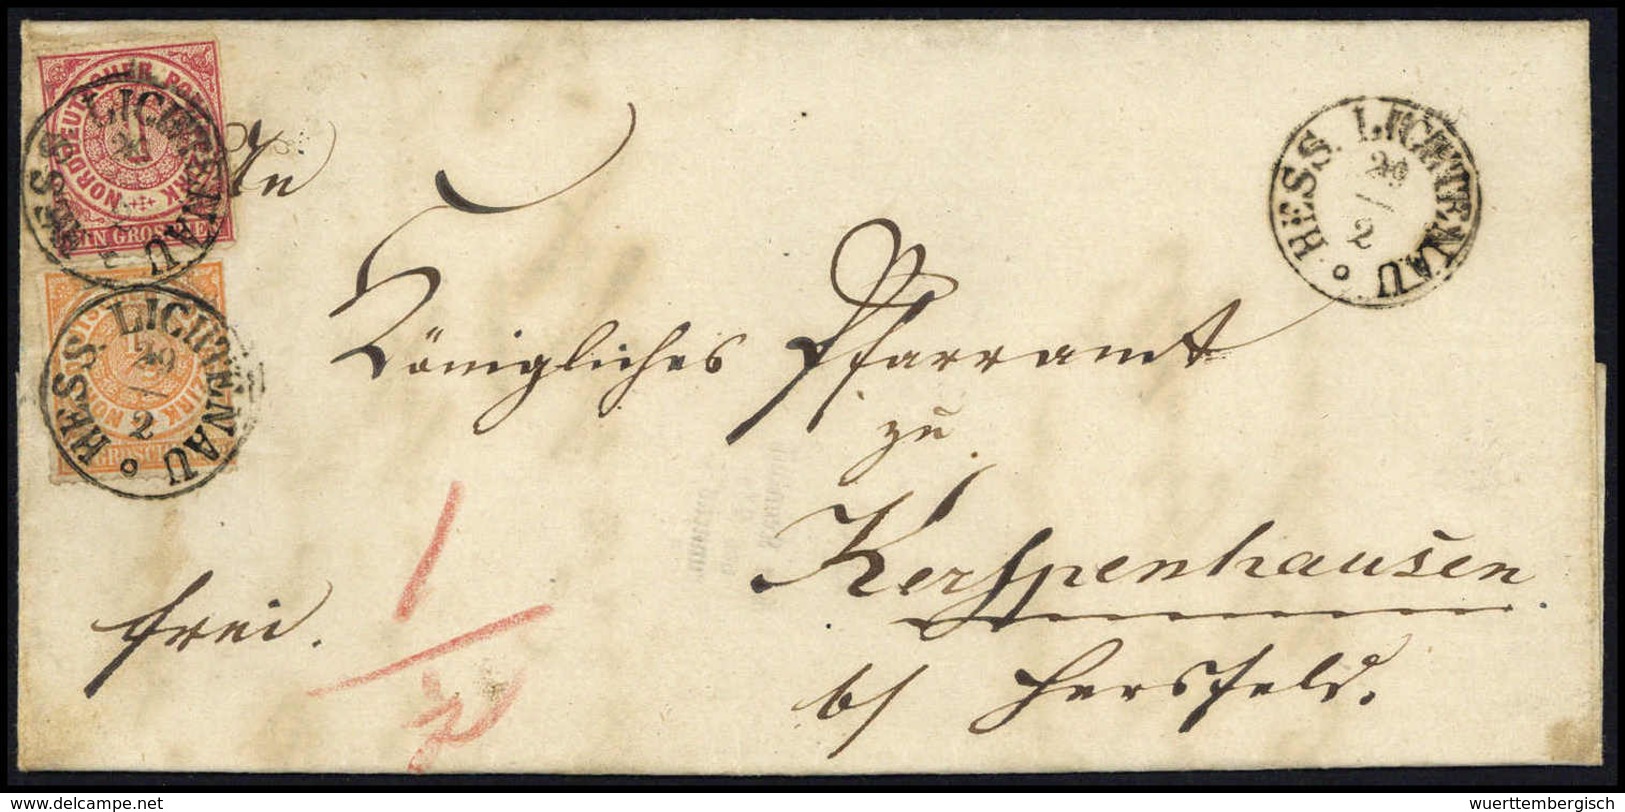 NORDDEUTSCHER POSTBEZIRK
1
EIN GROSCHEN
HESS. LICHTENAU
29
2
HESS. LICHTENAU
29
2
HESS. LICHTENAU
29
2
An
Königliches Pfarramt
zu
Kerspenhausen.
b/ Hersfeld.
frei.
1/2
www.delcampe.net
wuerttembergisch